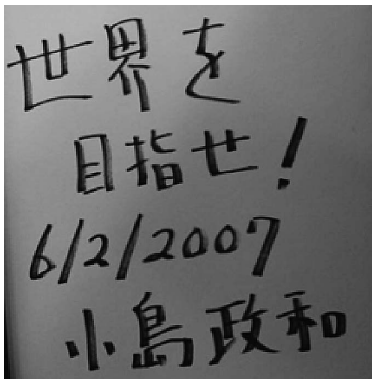 世界を
目指せ!
6/2/2007
小島政和